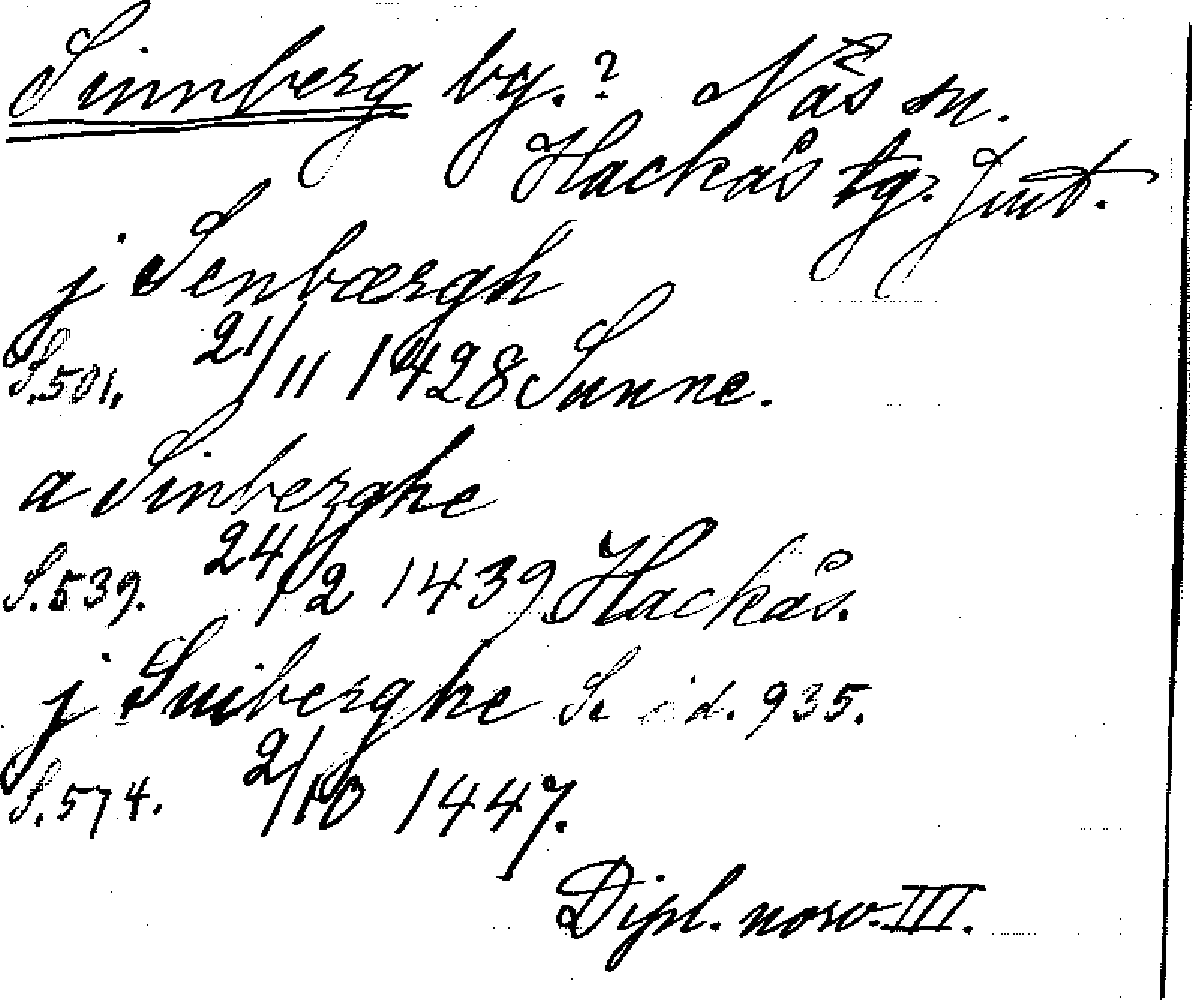 Sinnberg by.? Näs sn.
Hackås tg. Jmt.
j Senbærgh
S.501. 21/11 1428 Sunne.
a Sinberghe
S.539. 24/12 1439 Hackås.
j Suiberghe S. id. 935.
S.574. 2/10 1447.
Dipl. norv. III.